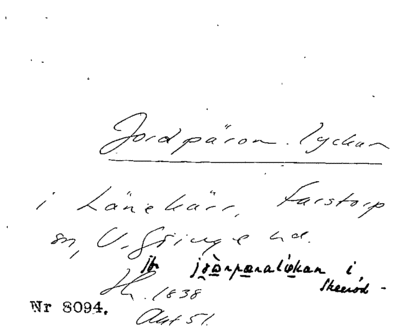 Jordpäron-lyckan
i Länekärr, Farstorp
sn, V. Göinge hd.
jfr jọrpæralökan i
Skeeröd -
Hk. 1838
Nr 8094.
Akt 51.